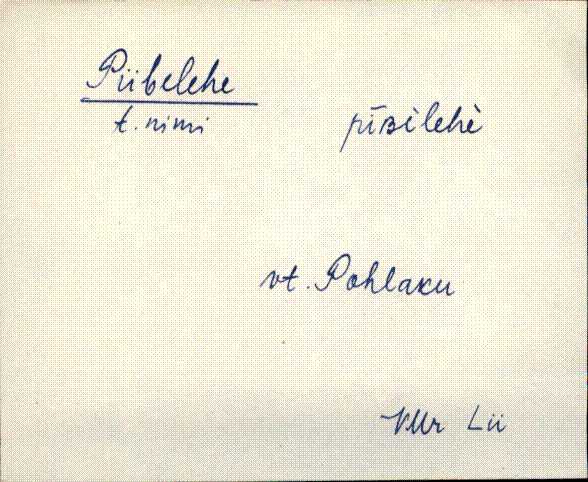 Piibelehe
t. nimi
pīʙèlehè
vt. Pohlaku
VMr Lii